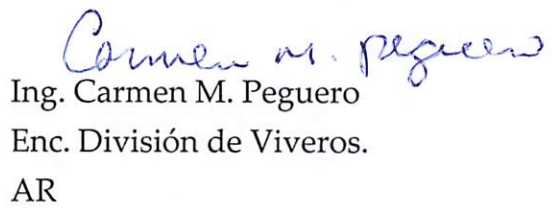 Carmen M. Peguero
Ing. Carmen M. Peguero
Enc. División de Viveros.
AR